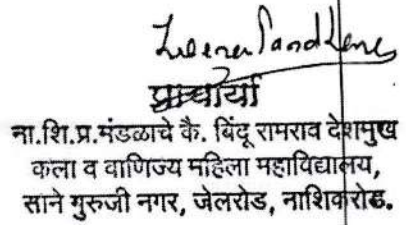 प्राचार्या
ना.शि.प्र.मंडळाचे कै. बिंदू रामराव देशमुख
कला व वाणिज्य महिला महाविद्यालय,
साने गुरुजी नगर, जेलरोड, नाशिकरोड.